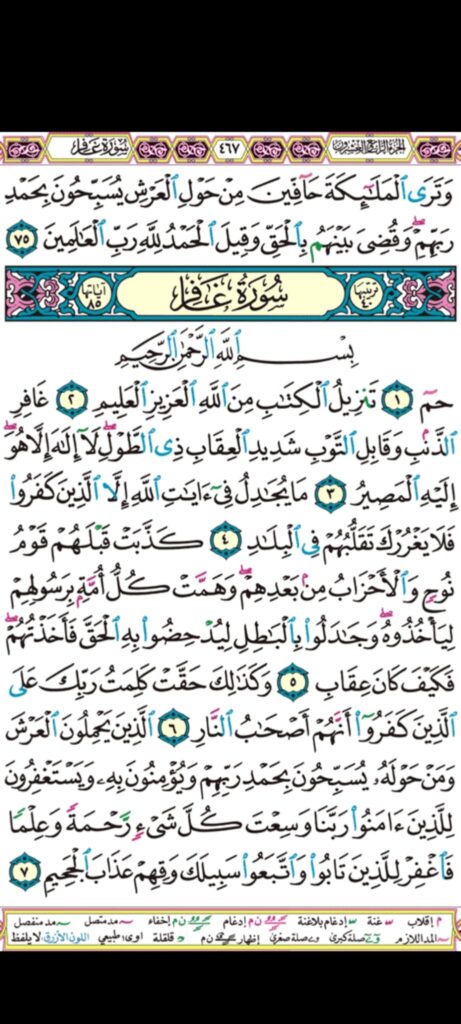 سُورَةُ غَافِرٍ ٤٦٧ الجُزْءُ الرَّابِعُ وَالعِشْرُونَ
وَتَرَى ٱلْمَلَـٰٓئِكَةَ حَآفِّينَ مِنْ حَوْلِ ٱلْعَرْشِ يُسَبِّحُونَ بِحَمْدِ
رَبِّهِمْ ۖ وَقُضِىَ بَيْنَهُم بِٱلْحَقِّ وَقِيلَ ٱلْحَمْدُ لِلَّهِ رَبِّ ٱلْعَـٰلَمِينَ ٧٥
ترتيبها ٤٠ سُورَةُ غَافِرٍ آياتها ٨٥
بِسْمِ ٱللَّهِ ٱلرَّحْمَـٰنِ ٱلرَّحِيمِ
حمٓ ١ تَنزِيلُ ٱلْكِتَـٰبِ مِنَ ٱللَّهِ ٱلْعَزِيزِ ٱلْعَلِيمِ ٢ غَافِرِ
ٱلذَّنۢبِ وَقَابِلِ ٱلتَّوْبِ شَدِيدِ ٱلْعِقَابِ ذِى ٱلطَّوْلِ ۖ لَآ إِلَـٰهَ إِلَّا هُوَ ۖ
إِلَيْهِ ٱلْمَصِيرُ ٣ مَا يُجَـٰدِلُ فِىٓ ءَايَـٰتِ ٱللَّهِ إِلَّا ٱلَّذِينَ كَفَرُوا۟
فَلَا يَغْرُرْكَ تَقَلُّبُهُمْ فِى ٱلْبِلَـٰدِ ٤ كَذَّبَتْ قَبْلَهُمْ قَوْمُ
نُوحٍ وَٱلْأَحْزَابُ مِنۢ بَعْدِهِمْ ۖ وَهَمَّتْ كُلُّ أُمَّةٍۭ بِرَسُولِهِمْ
لِيَأْخُذُوهُ ۖ وَجَـٰدَلُوا۟ بِٱلْبَـٰطِلِ لِيُدْحِضُوا۟ بِهِ ٱلْحَقَّ فَأَخَذْتُهُمْ ۖ
فَكَيْفَ كَانَ عِقَابِ ٥ وَكَذَٰلِكَ حَقَّتْ كَلِمَتُ رَبِّكَ عَلَى
ٱلَّذِينَ كَفَرُوٓا۟ أَنَّهُمْ أَصْحَـٰبُ ٱلنَّارِ ٦ ٱلَّذِينَ يَحْمِلُونَ ٱلْعَرْشَ
وَمَنْ حَوْلَهُۥ يُسَبِّحُونَ بِحَمْدِ رَبِّهِمْ وَيُؤْمِنُونَ بِهِۦ وَيَسْتَغْفِرُونَ
لِلَّذِينَ ءَامَنُوا۟ رَبَّنَا وَسِعْتَ كُلَّ شَىْءٍ رَّحْمَةً وَعِلْمًا
فَٱغْفِرْ لِلَّذِينَ تَابُوا۟ وَٱتَّبَعُوا۟ سَبِيلَكَ وَقِهِمْ عَذَابَ ٱلْجَحِيمِ ٧
م إقلاب س غنة س إدغام بلاغنة ن م إدغام ن م إخفاء مد متصل مد منفصل
المد اللازم صلة كبرى صلة صغرى إظهار ن م قلقلة اوى، طبيعي اللون الأزرق: لا يلفظ